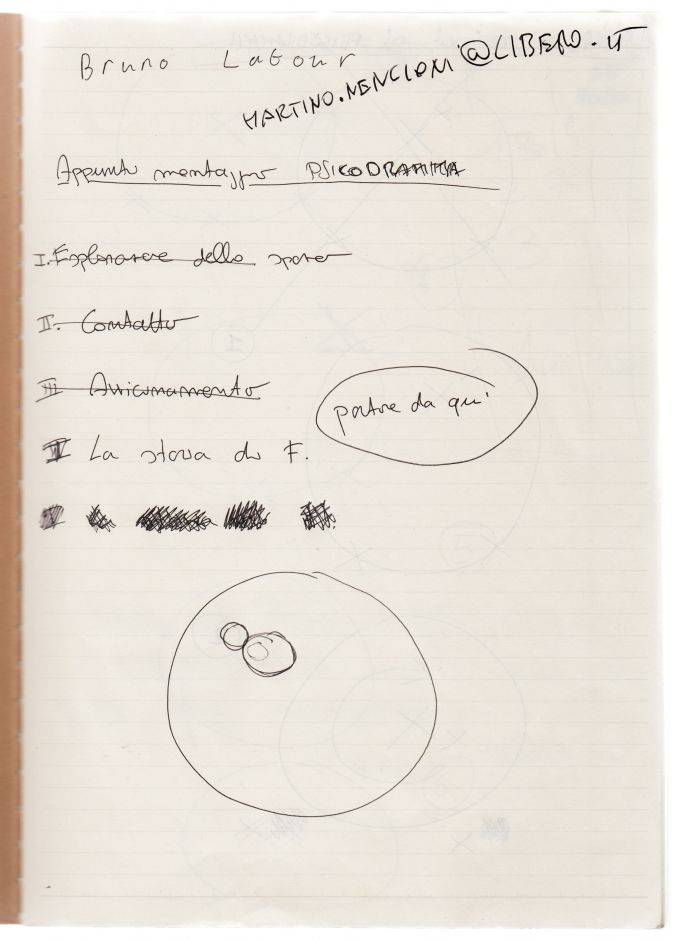 Bruno Latour
MARTINO.NENCIONI@LIBERO.IT
Appunti montaggio PSICODRAMMA
I. Esplorazione dello spazio
II. Contatto
III Avvicinamento
partire da qui
IV La storia di F.
V